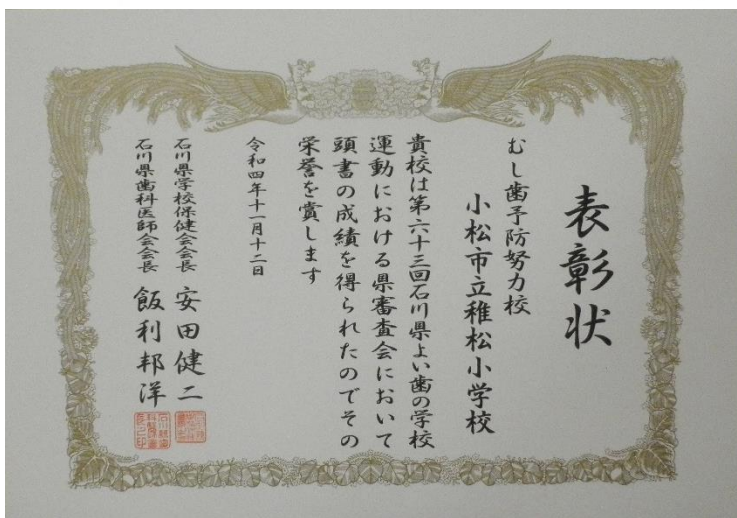 表彰状
むし歯予防努力校
小松市立稚松小学校
貴校は第六十三回石川県よい歯の学校
運動における県審査会において
頭書の成績を得られたのでその
栄誉を賞します
令和四年十一月十二日
石川県学校保健会会長 安田健二
石川県歯科医師会会長 飯利邦洋